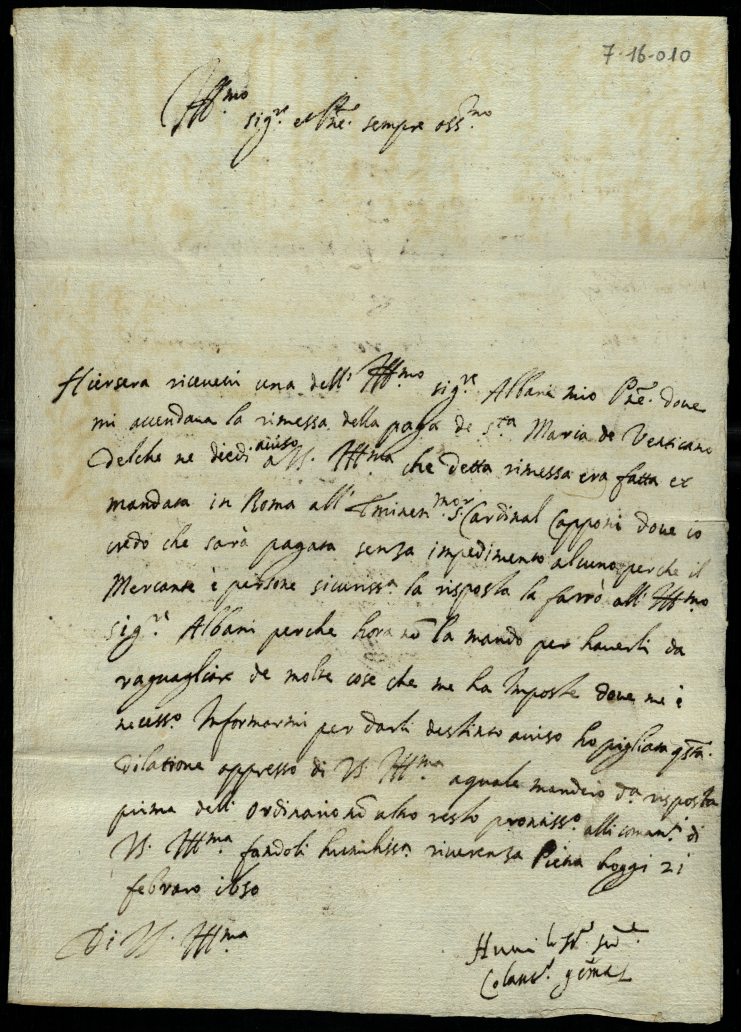 7-16-010
Ill.mo
sig.re et P.ne sempre oss.mo
Hiersera ricevei una dell' Ill.mo sig.re Albani mio P.ne dove
mi accendava la rimessa della paga de s.ta Maria de Venticano
delche ne diedi aviso a V.S. Ill.ma che detta rimessa era fatta et
mandata in Roma all' Eminen.mo s.r Cardinal Capponi dove io
credo che sarà pagata senza impedimento alcuno, perche il
Mercante è persone sicuriss.a la risposta la farrò all' Ill.mo
sig.re Albani perche hora nō la mando per haverli da
raguagliare de molte cose che me ha Imposte dove me è
necess.o Informarmi per darli destinto aviso ho pigliata q.sta
dilatione appresso di V.S. Ill.ma a quale manderò d.a risposta
prima dell' ordinario nō altro resto prontiss.o alli coman.ti di
V.S. Ill.ma fandoli humiliss.a riverenza Pietra hoggi 21
febraro 1650
Di V.S. Ill.ma
Humiliss.o ser.e